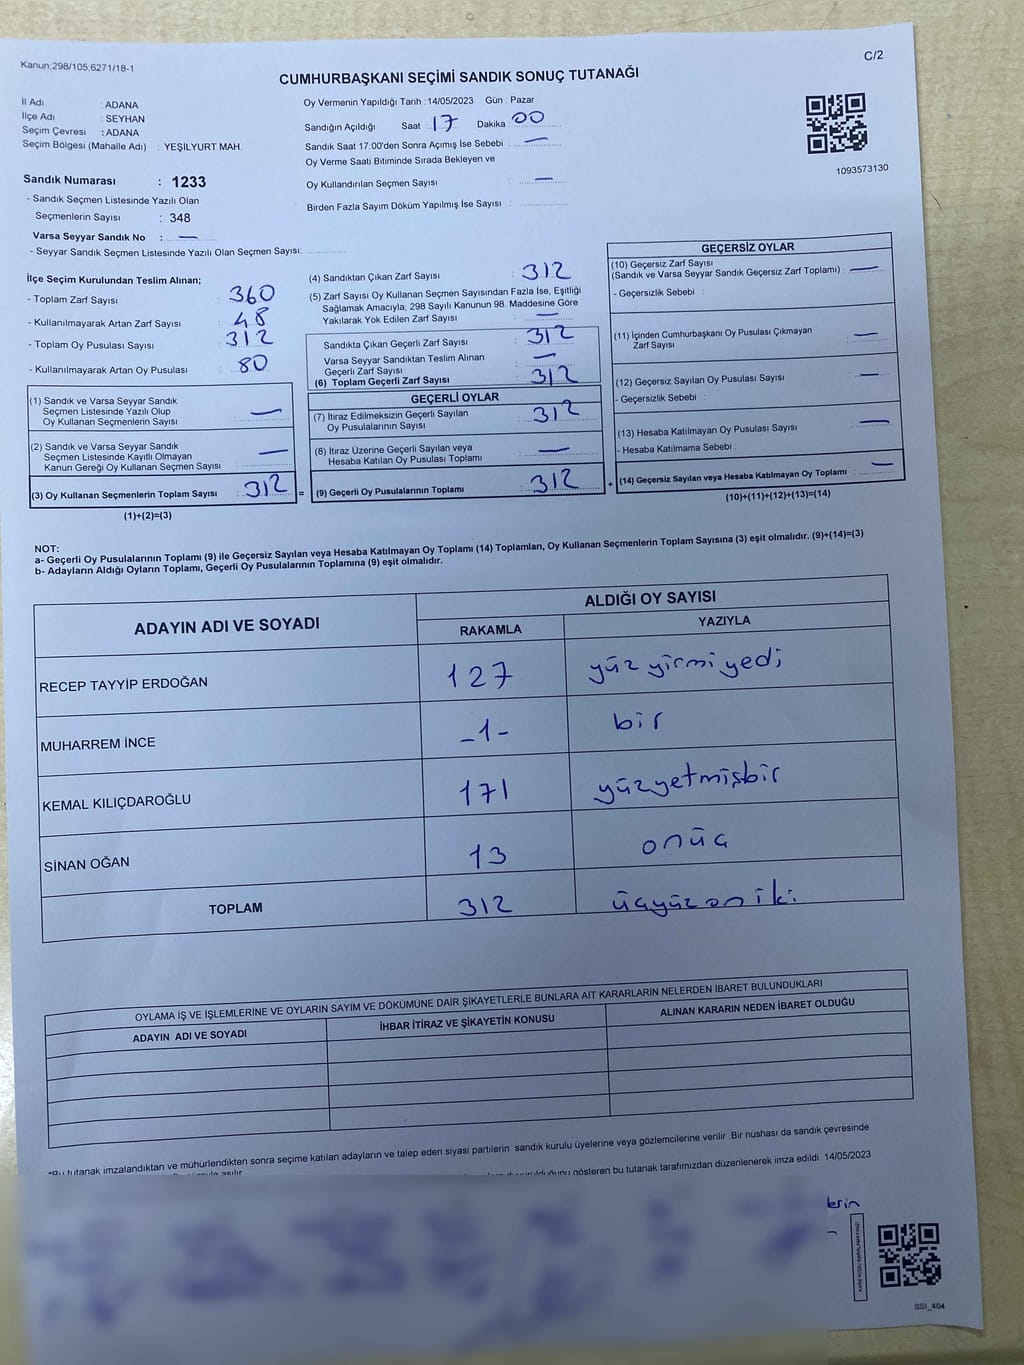 Kanun:298/105,6271/18-1
C/2
CUMHURBAŞKANI SEÇİMİ SANDIK SONUÇ TUTANAĞI
İl Adı : ADANA
İlçe Adı : SEYHAN
Seçim Çevresi : ADANA
Seçim Bölgesi (Mahalle Adı) : YEŞİLYURT MAH.
Sandık Numarası : 1233
- Sandık Seçmen Listesinde Yazılı Olan
Seçmenlerin Sayısı : 348
Varsa Seyyar Sandık No : —
- Seyyar Sandık Seçmen Listesinde Yazılı Olan Seçmen Sayısı:
Oy Vermenin Yapıldığı Tarih :14/05/2023 Gün : Pazar
Sandığın Açıldığı Saat : 17 Dakika : 00
Sandık Saat 17:00'den Sonra Açımış İse Sebebi : —
Oy Verme Saati Bitiminde Sırada Bekleyen ve
Oy Kullandırılan Seçmen Sayısı : —
Birden Fazla Sayım Döküm Yapılmış İse Sayısı :
1093573130
İlçe Seçim Kurulundan Teslim Alınan;
- Toplam Zarf Sayısı : 360
- Kullanılmayarak Artan Zarf Sayısı : 48
- Toplam Oy Pusulası Sayısı : 312
- Kullanılmayarak Artan Oy Pusulası : 80
(1) Sandık ve Varsa Seyyar Sandık
Seçmen Listesinde Yazılı Olup
Oy Kullanan Seçmenlerin Sayısı : —
(2) Sandık ve Varsa Seyyar Sandık
Seçmen Listesinde Kayıtlı Olmayan
Kanun Gereği Oy Kullanan Seçmen Sayısı : —
(3) Oy Kullanan Seçmenlerin Toplam Sayısı : 312 =
(1)+(2)=(3)
(4) Sandıktan Çıkan Zarf Sayısı : 312
(5) Zarf Sayısı Oy Kullanan Seçmen Sayısından Fazla İse, Eşitliği
Sağlamak Amacıyla, 298 Sayılı Kanunun 98. Maddesine Göre
Yakılarak Yok Edilen Zarf Sayısı : —
Sandıkta Çıkan Geçerli Zarf Sayısı : 312
Varsa Seyyar Sandıktan Teslim Alınan
Geçerli Zarf Sayısı : —
(6) Toplam Geçerli Zarf Sayısı : 312
GEÇERLİ OYLAR
(7) İtiraz Edilmeksizin Geçerli Sayılan
Oy Pusulalarının Sayısı : 312
(8) İtiraz Üzerine Geçerli Sayılan veya
Hesaba Katılan Oy Pusulası Toplamı : —
(9) Geçerli Oy Pusulalarının Toplamı : 312 +
GEÇERSİZ OYLAR
(10) Geçersiz Zarf Sayısı
(Sandık ve Varsa Seyyar Sandık Geçersiz Zarf Toplamı) : —
- Geçersizlik Sebebi :
(11) İçinden Cumhurbaşkanı Oy Pusulası Çıkmayan
Zarf Sayısı : —
(12) Geçersiz Sayılan Oy Pusulası Sayısı : —
- Geçersizlik Sebebi :
(13) Hesaba Katılmayan Oy Pusulası Sayısı : —
- Hesaba Katılmama Sebebi :
(14) Geçersiz Sayılan veya Hesaba Katılmayan Oy Toplamı : —
(10)+(11)+(12)+(13)=(14)
NOT:
a- Geçerli Oy Pusulalarının Toplamı (9) ile Geçersiz Sayılan veya Hesaba Katılmayan Oy Toplamı (14) Toplamları, Oy Kullanan Seçmenlerin Toplam Sayısına (3) eşit olmalıdır. (9)+(14)=(3)
b- Adayların Aldığı Oyların Toplamı, Geçerli Oy Pusulalarının Toplamına (9) eşit olmalıdır.
ADAYIN ADI VE SOYADI
ALDIĞI OY SAYISI
RAKAMLA YAZIYLA
RECEP TAYYİP ERDOĞAN 127 yüzyirmiyedi
MUHARREM İNCE -1- bir
KEMAL KILIÇDAROĞLU 171 yüzyetmişbir
SİNAN OĞAN 13 onüç
TOPLAM 312 üçyüzoniki
OYLAMA İŞ VE İŞLEMLERİNE VE OYLARIN SAYIM VE DÖKÜMÜNE DAİR ŞİKAYETLERLE BUNLARA AİT KARARLARIN NELERDEN İBARET BULUNDUKLARI
ADAYIN ADI VE SOYADI İHBAR İTİRAZ VE ŞİKAYETİN KONUSU ALINAN KARARIN NEDEN İBARET OLDUĞU
*Bu tutanak imzalandıktan ve mühürlendikten sonra seçime katılan adayların ve talep eden siyasi partilerin sandık kurulu üyelerine veya gözlemcilerine verilir. Bir nüshası da sandık çevresinde
gösteren bu tutanak tarafımızdan düzenlenerek imza edildi. 14/05/2023
KARE KODU KARALAMAYINIZ!
SSI_404